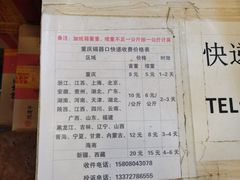 备注：加纸箱重量，续重不足一公斤按一公斤计算
重庆磁器口快递收费价格表
区域 价格 价格 时效
首重 续重
重庆 8元 5元 1-2天
浙江、江西、上海、北京、
安徽、贵州、湖北、广东、
湖南、河南、天津、湖北、
江苏、四川、福建、云南、
广西、山东、福建
10元 6元/ 2-3天
/公斤 公斤
黑龙江、吉林、辽宁、山西
青海、宁夏、甘肃、内蒙古、
海南
12元 8元 3-4天
新疆、西藏 20元 15元 4-6天
收件电话：15808043078
投诉电话：13372786555
快递
TEL